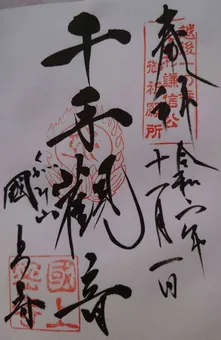 奉拝
越後
謙信公
御祈願所
令和六年
十一月一日
千手觀音
くがみ山
國上寺